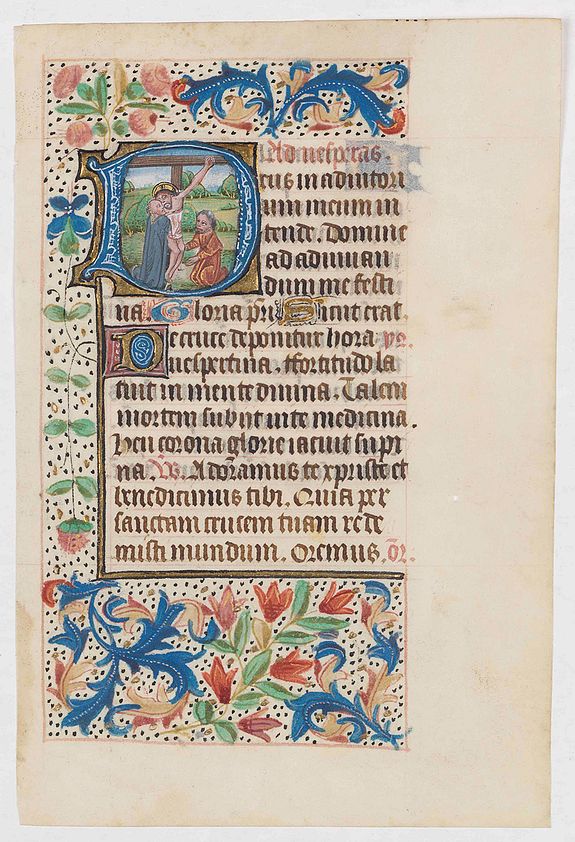 Ad uesperas.
Deus in adiutori
um meum in
tende. Domine
ad adiuuan
dum me festi
na Gloria pri Sicut erat.
De cruce deponitur hora yp.
uespertina. ffortitudo la
tuit in mente diuina. Talem
mortem subijt uite medicina.
heu corona glorie iacuit supi
na. V. Adoramus te xpriste et
benedicimus tibi. Quia per
sanctam crucem tuam rede
misti mundum. Oremus. or.